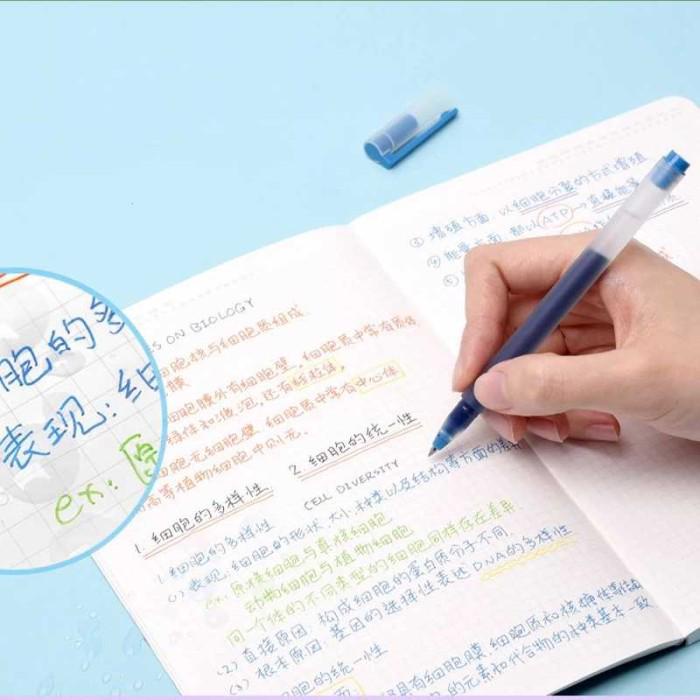 ③ 增殖方面,以细胞分裂的方式增殖
④ 能量方面,都以ATP→直接能量
⑤
ON BIOLOGY
细胞核与细胞质组成.
膜
细胞膜外有细胞壁,细胞质中常有质体
和液泡,还有线粒体.
细胞无细胞壁,细胞质中常有中心体
高等植物细胞中则无.
2. 细胞的统一性
CELL DIVERSITY
1. 细胞的多样性.
1. 细胞的多样性
(1) 表现:细胞的形状、大小、种类以及结构等方面的差异
ex: 原核细胞与真核细胞
动物细胞与植物细胞
同一个体的不同类型的细胞同样存在差异.
(2) 直接原因:构成细胞的蛋白质分子不同.
(3) 根本原因:基因的选择性表达 DNA的多样性
细胞的统一性
具有细胞膜、细胞质和核糖体等结构
的元素和化合物的种类基本一致
胞的多
表现:细
ex: 原